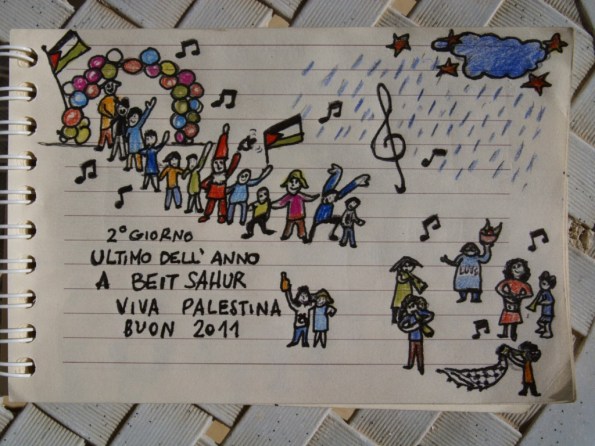 2° GIORNO
ULTIMO DELL'ANNO
A BEIT SAHUR
VIVA PALESTINA
BUON 2011